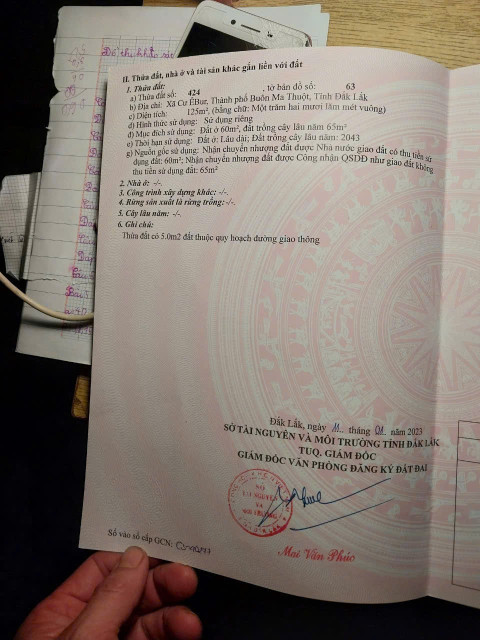 II. Thửa đất, nhà ở và tài sản khác gắn liền với đất
1. Thửa đất:
a) Thửa đất số: 424 , tờ bản đồ số: 63
b) Địa chỉ: Xã Cư ÊBur, Thành phố Buôn Ma Thuột, Tỉnh Đắk Lắk
c) Diện tích: 125m², (bằng chữ: Một trăm hai mươi lăm mét vuông)
d) Hình thức sử dụng: Sử dụng riêng
đ) Mục đích sử dụng: Đất ở 60m², đất trồng cây lâu năm 65m²
e) Thời hạn sử dụng: Đất ở: Lâu dài; Đất trồng cây lâu năm: 2043
g) Nguồn gốc sử dụng: Nhận chuyển nhượng đất được Nhà nước giao đất có thu tiền sử
dụng đất: 60m²; Nhận chuyển nhượng đất được Công nhận QSDĐ như giao đất không
thu tiền sử dụng đất: 65m²
2. Nhà ở: -/-.
3. Công trình xây dựng khác: -/-.
4. Rừng sản xuất là rừng trồng: -/-.
5. Cây lâu năm: -/-.
6. Ghi chú:
Thửa đất có 5.0m2 đất thuộc quy hoạch đường giao thông
Đắk Lắk, ngày 11 tháng 01 năm 2023
SỞ TÀI NGUYÊN VÀ MÔI TRƯỜNG TỈNH ĐẮK LẮK
TUQ. GIÁM ĐỐC
GIÁM ĐỐC VĂN PHÒNG ĐĂNG KÝ ĐẤT ĐAI
SỞ
TÀI NGUYÊN
VÀ
MÔI TRƯỜNG
Mai Văn Phúc
Số vào sổ cấp GCN: